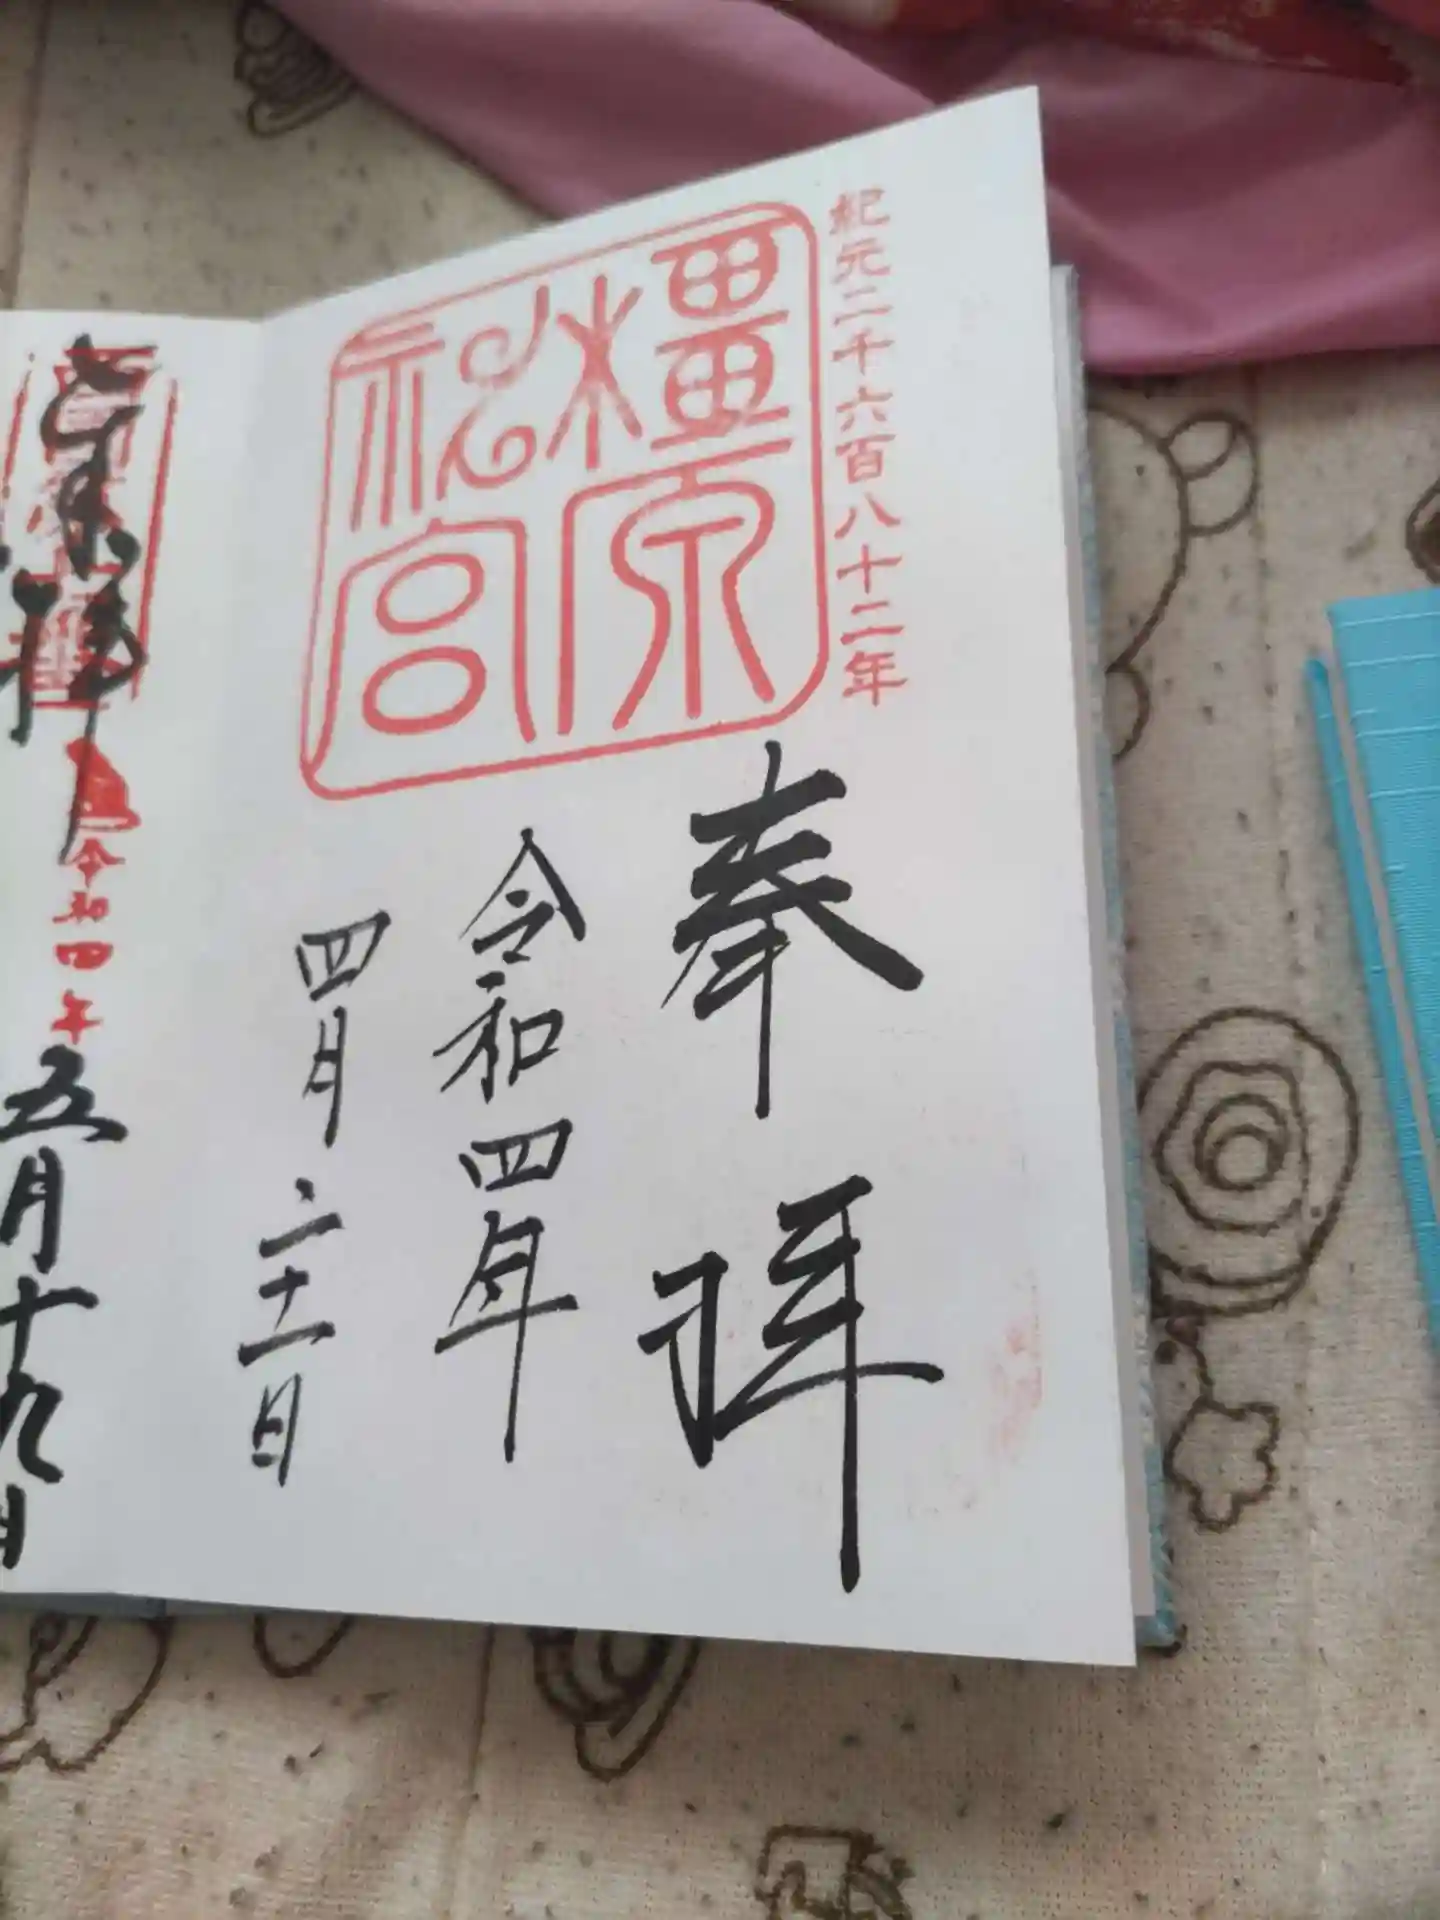 紀元二千六百八十二年
橿原
神宮
奉拝
令和四年
四月二十一日
奉拝
令和四年
五月十九日